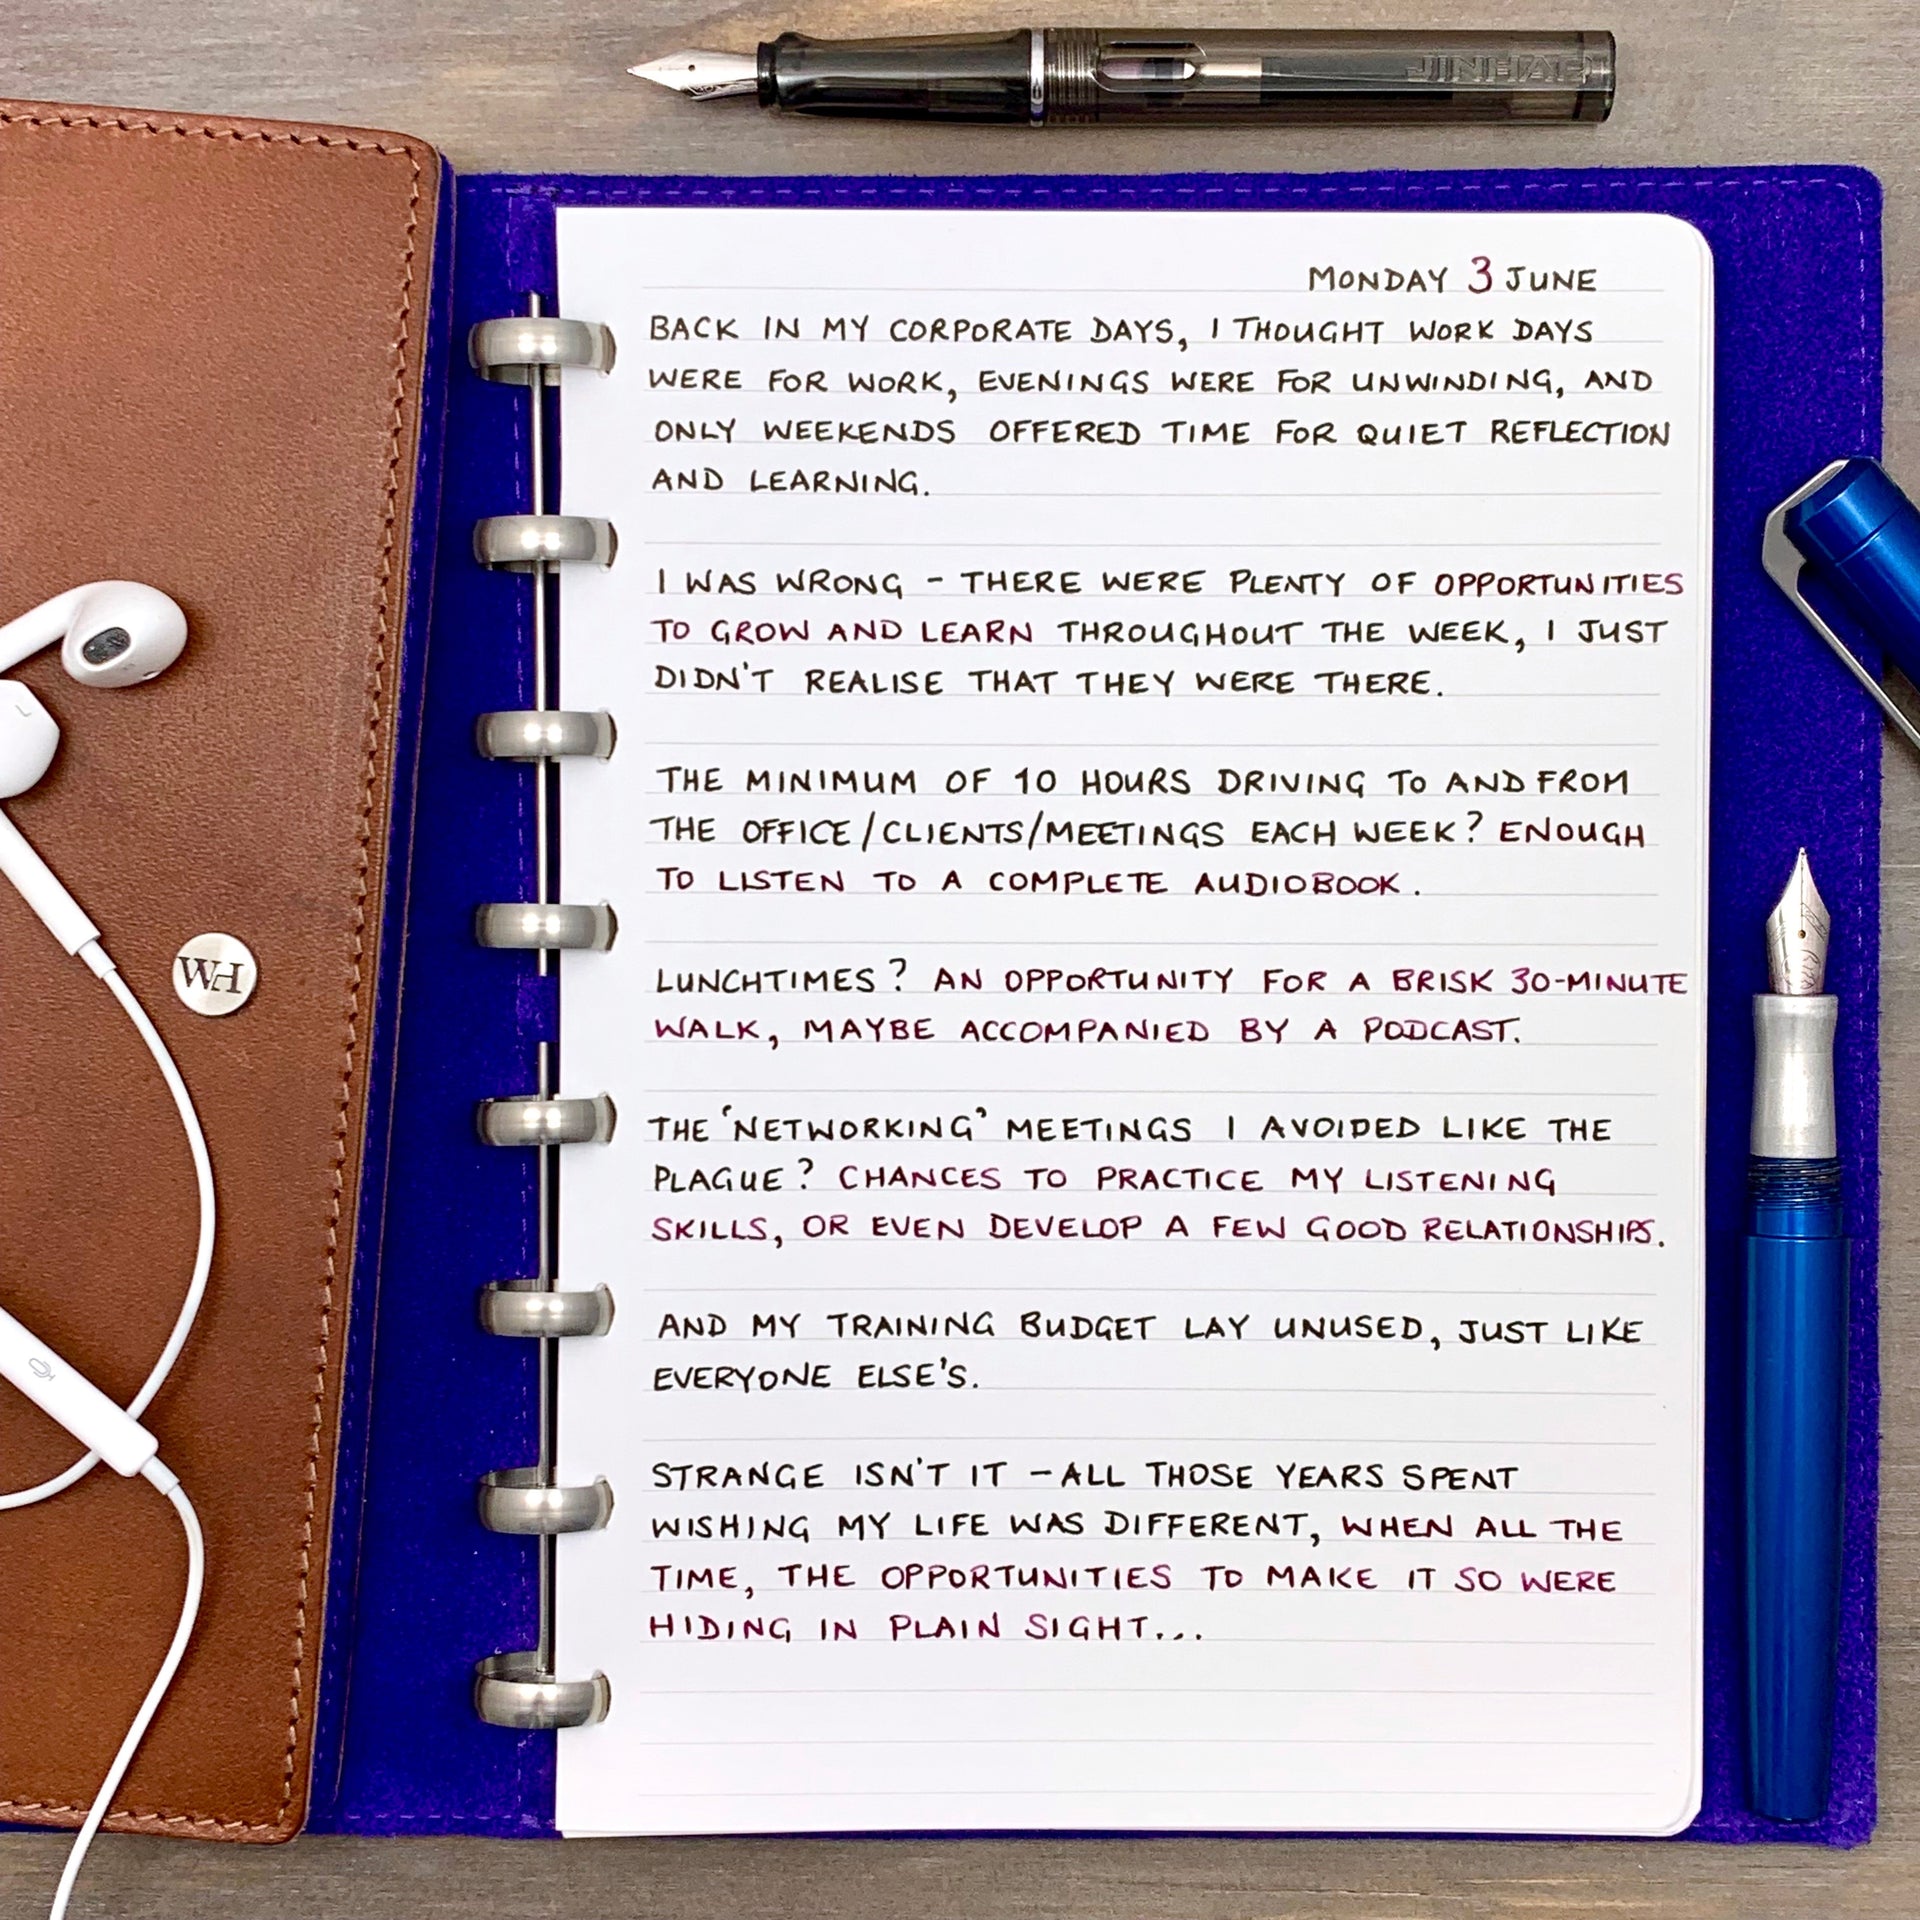 JINHAO
MONDAY 3 JUNE
BACK IN MY CORPORATE DAYS, I THOUGHT WORK DAYS
WERE FOR WORK, EVENINGS WERE FOR UNWINDING, AND
ONLY WEEKENDS OFFERED TIME FOR QUIET REFLECTION
AND LEARNING.
I WAS WRONG - THERE WERE PLENTY OF OPPORTUNITIES
TO GROW AND LEARN THROUGHOUT THE WEEK, I JUST
DIDN'T REALISE THAT THEY WERE THERE.
THE MINIMUM OF 10 HOURS DRIVING TO AND FROM
THE OFFICE/CLIENTS/MEETINGS EACH WEEK? ENOUGH
TO LISTEN TO A COMPLETE AUDIOBOOK.
LUNCHTIMES? AN OPPORTUNITY FOR A BRISK 30-MINUTE
WALK, MAYBE ACCOMPANIED BY A PODCAST.
THE 'NETWORKING' MEETINGS I AVOIDED LIKE THE
PLAGUE? CHANCES TO PRACTICE MY LISTENING
SKILLS, OR EVEN DEVELOP A FEW GOOD RELATIONSHIPS.
AND MY TRAINING BUDGET LAY UNUSED, JUST LIKE
EVERYONE ELSE'S.
STRANGE ISN'T IT - ALL THOSE YEARS SPENT
WISHING MY LIFE WAS DIFFERENT, WHEN ALL THE
TIME, THE OPPORTUNITIES TO MAKE IT SO WERE
HIDING IN PLAIN SIGHT...
L
WH